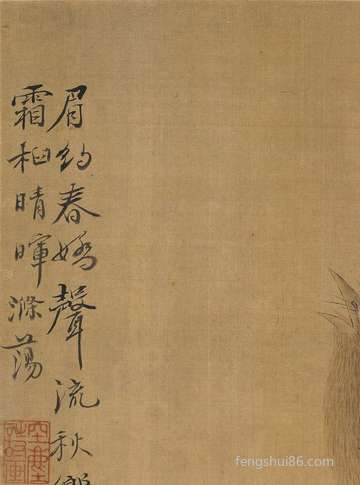 眉約春嬌聲流秋
霜桕晴暉滌蕩
fengshui86.com